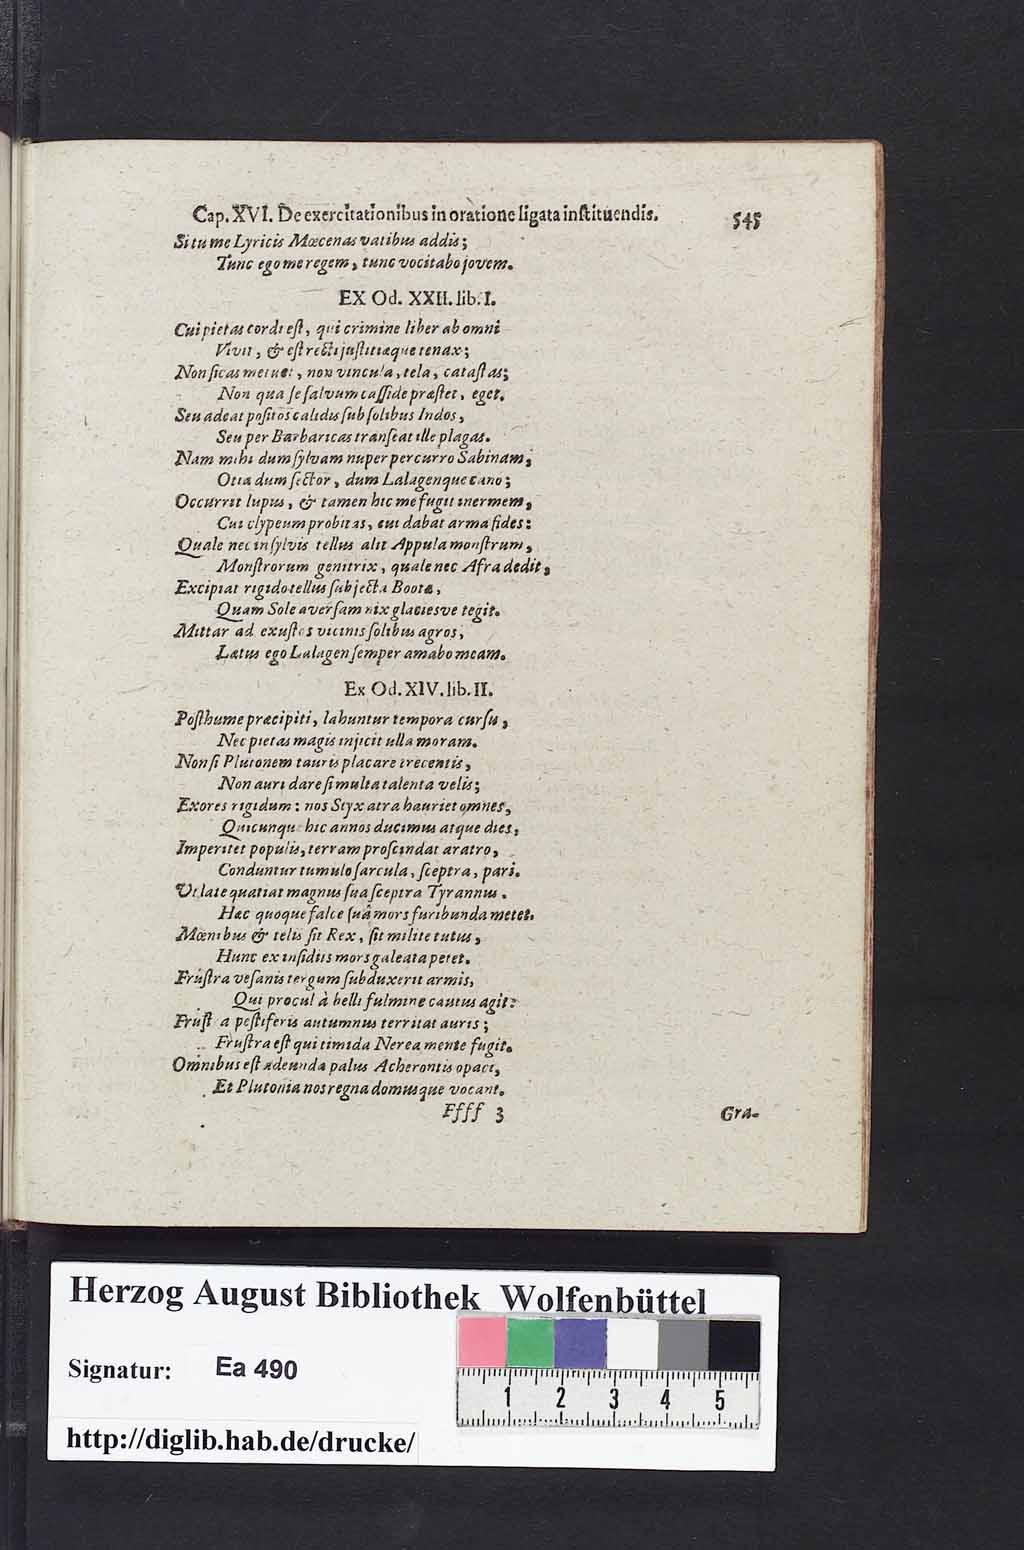 Cap. XVI. De exercitationibus in oratione ligata instituendis. 545
Si tu me Lyricis Mœcenas vatibus addis;
Tunc ego me regem, tunc vocitabo jovem.
EX Od. XXII. lib. I.
Cui pietas cordi est, qui crimine liber ab omni
Vivit, & est recti justitiæque tenax;
Non sicas metuet, non vincula, tela, catastas;
Non qua se salvum casside præstet, eget.
Seu adeat positos calidis sub solibus Indos,
Seu per Barbaricas transeat ille plagas.
Nam mihi dum sylvam nuper percurro Sabinam,
Otia dum sector, dum Lalagenque cano;
Occurrit lupus, & tamen hic me fugit inermem,
Cui clypeum probitas, cui dabat arma fides:
Quale nec in sylvis tellus alit Appula monstrum,
Monstrorum genitrix, quale nec Afra dedit,
Excipiat rigido tellus subjecta Bootæ,
Quam Sole aversam nix glaciesve tegit.
Mittar ad exustos vicinis solibus agros,
Lætus ego Lalagen semper amabo meam.
Ex Od. XIV. lib. II.
Posthume præcipiti, labuntur tempora cursu,
Nec pietas magis injicit ulla moram.
Non si Plutonem tauris placare trecentis,
Non auri dare si multa talenta velis;
Exores rigidum: nos Styx atra hauriet omnes,
Quicunque hic annos ducimus atque dies,
Imperitet populis, terram proscindat aratro,
Conduntur tumulo sarcula, sceptra, pari.
Ut late quatiat magnus sua sceptra Tyrannus.
Hæc quoque falce suâ mors furibunda metet.
Mœnibus & telis sit Rex, sit milite tutus,
Hunc ex insidiis mors galeata petet.
Frustra vesanis tergum subduxerit armis,
Qui procul à belli fulmine cautus agit:
Frust a pestiferis autumnus territat auris;
Frustra est qui timida Nerea mente fugit.
Omnibus est adeunda palus Acherontis opaci,
Et Plutonia nos regna domusque vocant.
Ffff 3 Gra-
Herzog August Bibliothek Wolfenbüttel
Signatur: Ea 490
1 2 3 4 5
http://diglib.hab.de/drucke/